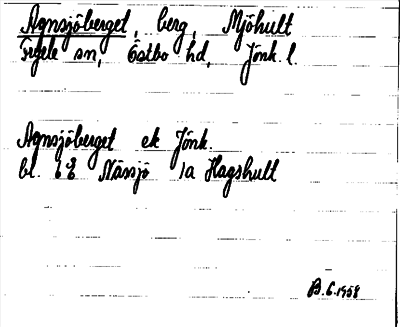 Agnsjöberget, berg, Mjöhult
Fryele sn, Östbo hd, Jönk. l.
Agnsjöberget ek Jönk.
bl. 6E Nässjö 1a Hagshult
B.G. 1958